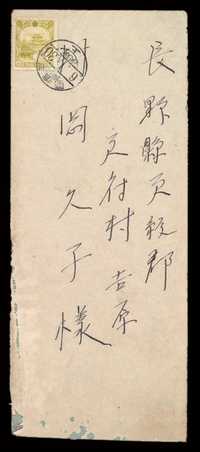 長野縣更級郡
更府村吉原
岡久子様